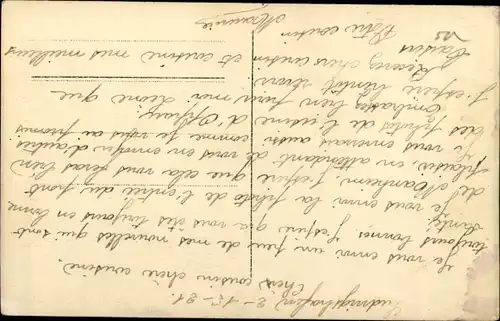 Ludwigshafen 2-12-21.
Chers cousin chère cousine.
Je vous envoi un peu de mes nouvelles qui sont
toujours bonnes j'espère que vous êtes toujours en bonne
santé.
Je vous envoi la photo de l'entrée du pont
de Manheim. J'espère que cela vous feras bien
plaisir, en attendant de vous en envoyer d'autres
Je vous enverrais aussi comme je vous ai promis
les photos de l'usine d'Oppau.
Embrassez bien pour moi Léone que
j'espère bientôt revoir
Recevez chers cousin et cousine mes meilleurs
baisers
Votre cousin
Maurice